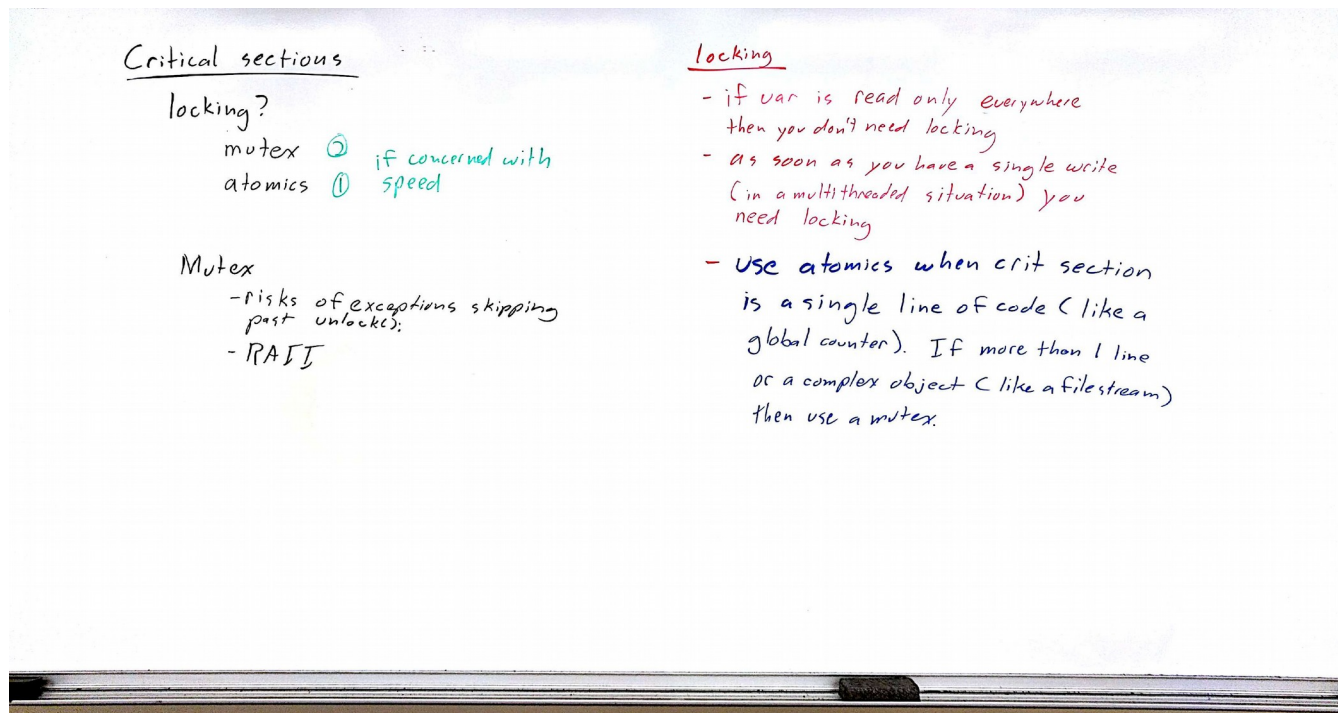 Critical sections
locking?
mutex ②
atomics ①
if concerned with
speed
Mutex
- risks of exceptions skipping
past unlock();
- RAII
locking
- if var is read only everywhere
then you don't need locking
- as soon as you have a single write
(in a multithreaded situation) you
need locking
- use atomics when crit section
is a single line of code (like a
global counter). If more than 1 line
or a complex object (like a filestream)
then use a mutex.